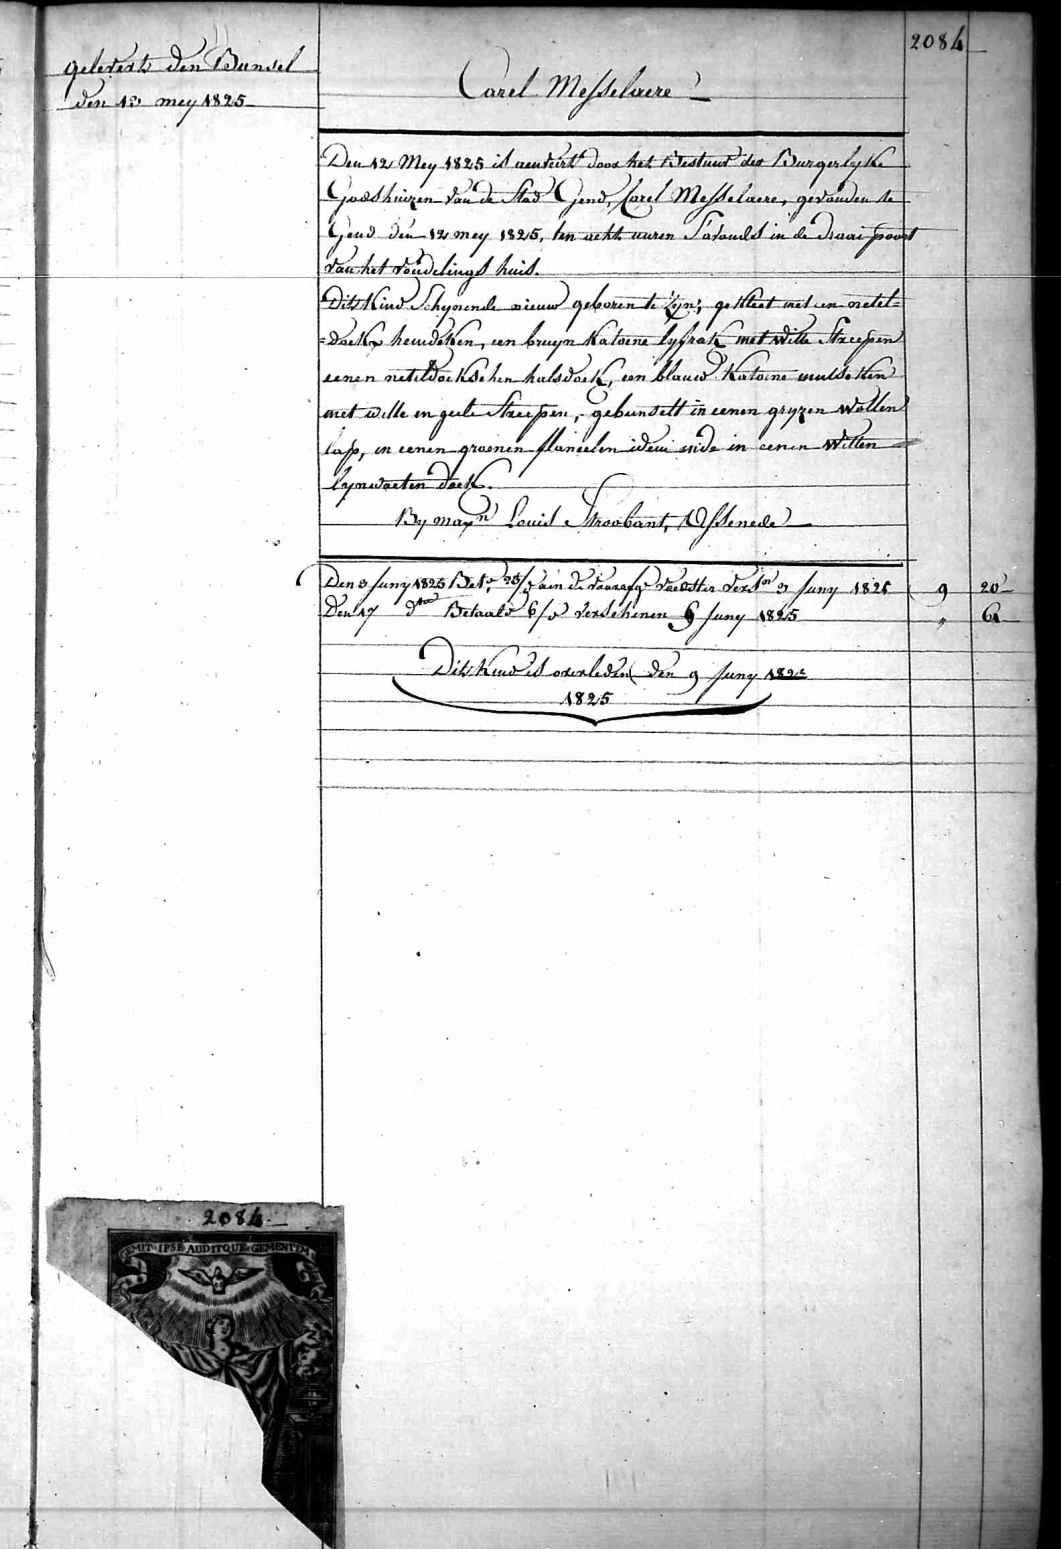 2084
geleverts den Bunsel
den 13 mey 1825
Carel Messelaere
Den 12 Mey 1825 is aenveirt door het Bestuur der Burgerlyke
Godshuizen van de Stad Gend, Carel Messelaere, gevonden te
Gend den 12 mey 1825, ten acht uuren S'avonds in de draai poort
van het vondelings huis.
Dit Kind Schynende nieuw geboren te Zyn, gekleet met een netel=
=doekx hemdeken, een bruyn Katoene lyfrak met witte Streepen
eenen neteldoekschen halsdoek, een blauw Katoene mutseken
met witte en geele Streepen, gebunselt in eenen gryzen wollen
lap, en eenen groenen flaneelen idem mids in eenen Witten
lynwaeten doek.
By Louis Stroobant, Assenede
Den 3 Juny 1825 Bet. 25/ aen de 3 Juny 1825 9 20
Den 17 dto Betaald 6/ verschenen 9 Juny 1825 " 61
Dit Kind is overleden den 9 Juny
1825
2084
GEMIT IPSE AUDITQUE GEMENTEM